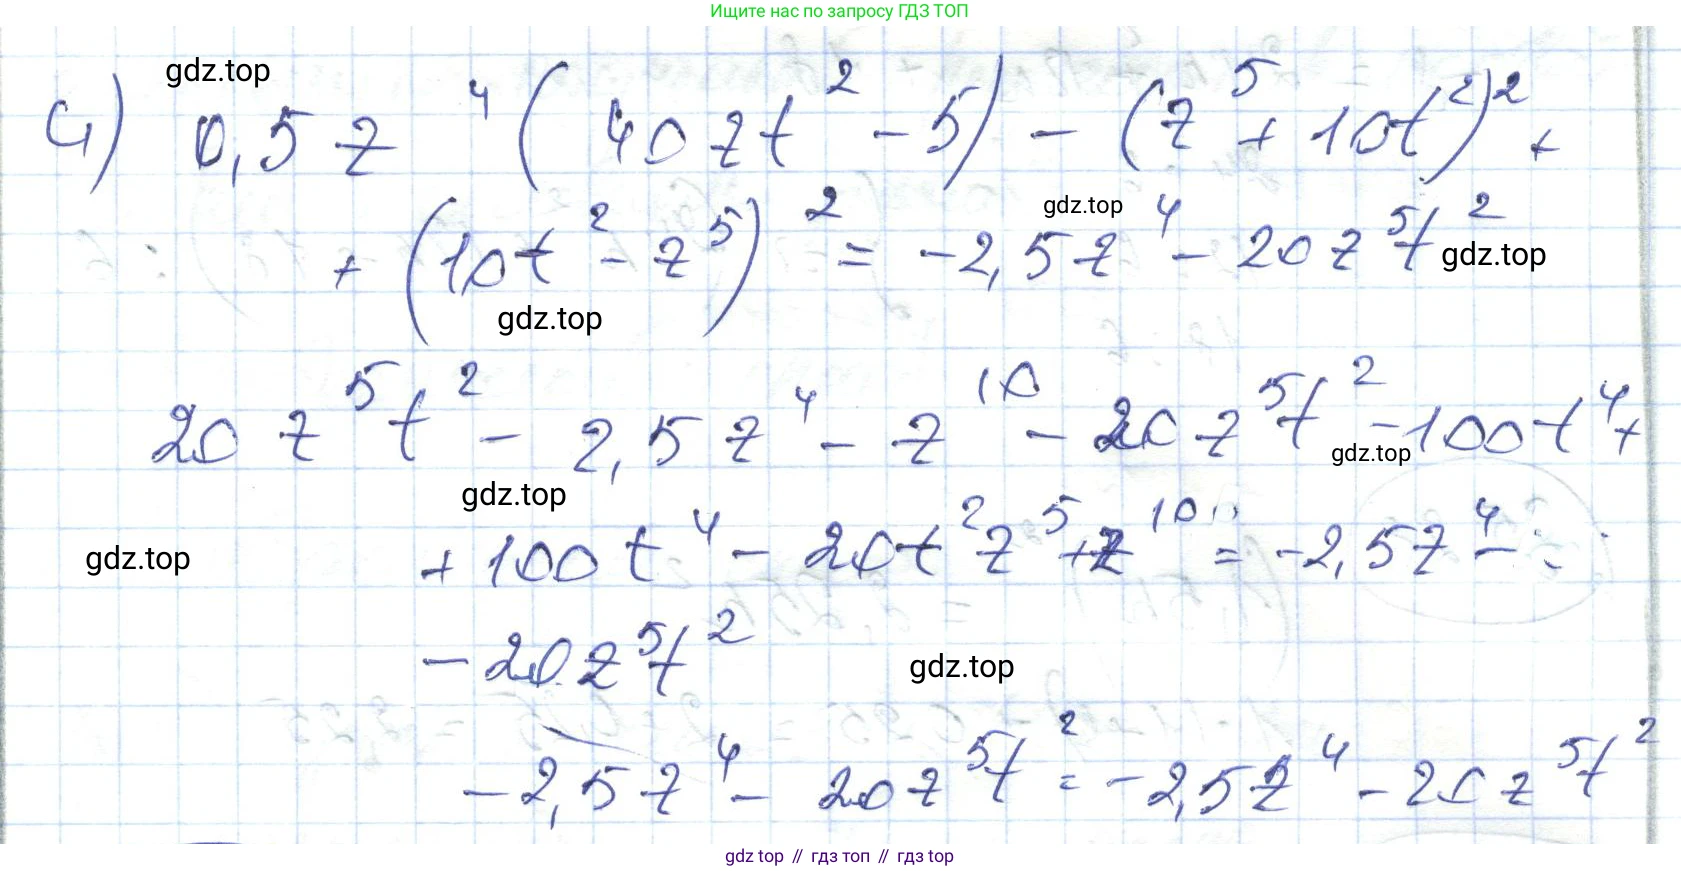 Ищите нас по запросу ГДЗ ТОП
gdz.top
4) 0,5z⁴(40zt² - 5) - (z⁵ + 10t²)² +
gdz.top
+ (10t² - z⁵)² = -2,5z⁴ - 20z⁵t²
gdz.top
gdz.top
20z⁵t² - 2,5z⁴ - z¹⁰ - 20z⁵t² - 100t⁴ +
gdz.top
gdz.top
+ 100t⁴ - 20t²z⁵ + z¹⁰ = -2,5z⁴ -
gdz.top
- 20z⁵t²
gdz.top
-2,5z⁴ - 20z⁵t² = -2,5z⁴ - 20z⁵t²
gdz top // гдз топ // гдз top